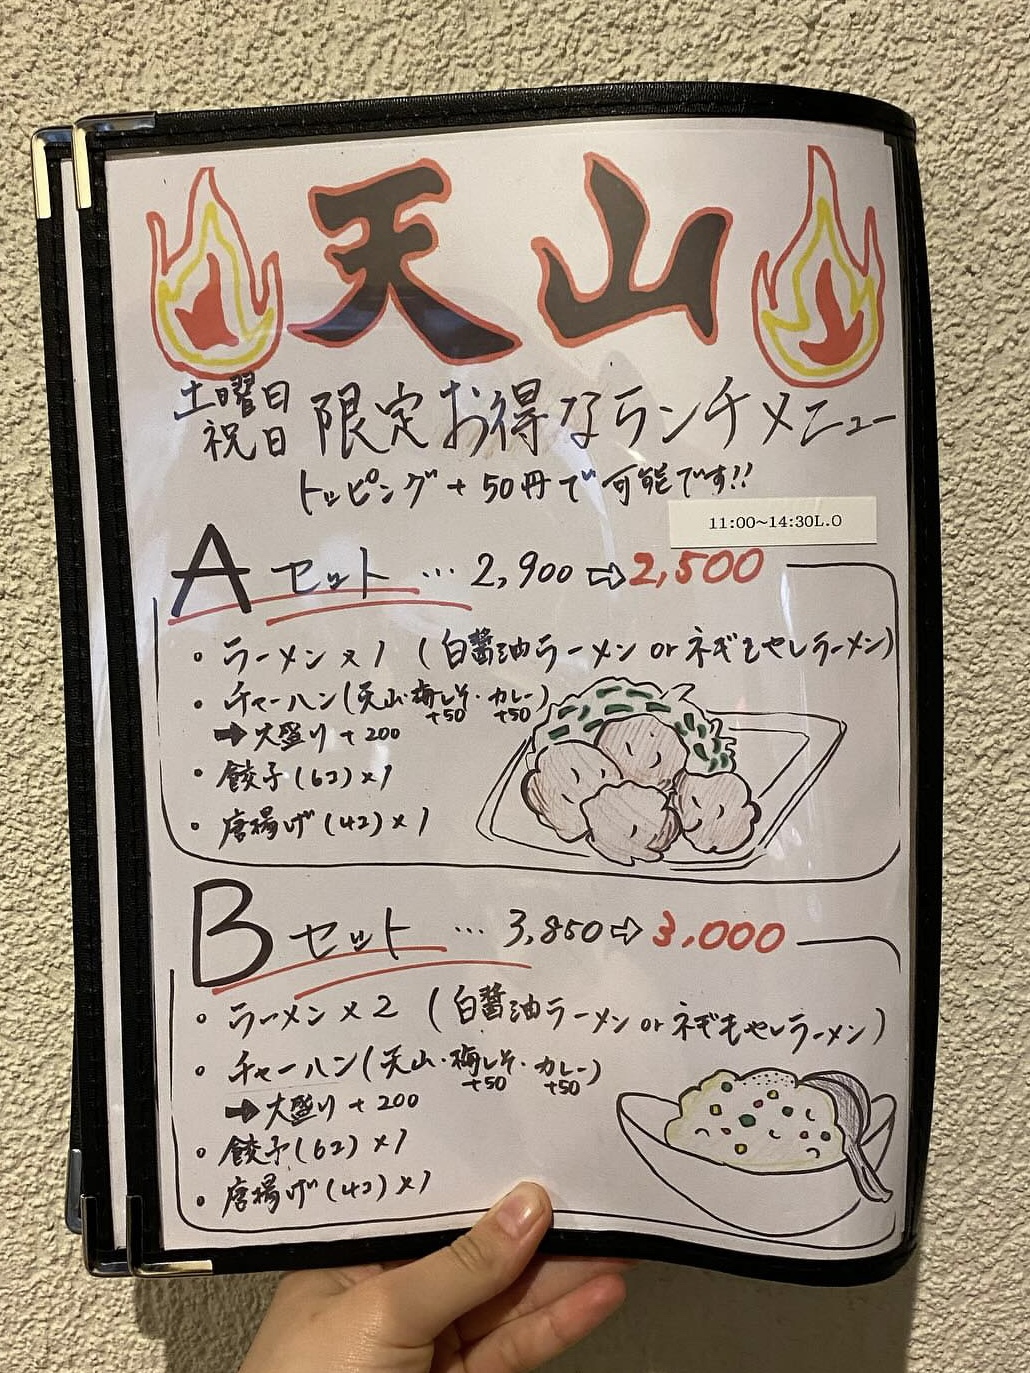 天山
土曜日
祝日
限定お得なランチメニュー
トッピング+50円で可能です!!
11:00~14:30L.O
Aセット…2,900⇨2,500
・ラーメン×1(白醤油ラーメン or ネギもやしラーメン)
・チャーハン(天山・梅しそ・カレー)
+50 +50
➡大盛り+200
・餃子(6コ)×1
・唐揚げ(4コ)×1
Bセット…3,850⇨3,000
・ラーメン×2(白醤油ラーメン or ネギもやしラーメン)
・チャーハン(天山・梅しそ・カレー)
+50 +50
➡大盛り+200
・餃子(6コ)×1
・唐揚げ(4コ)×1